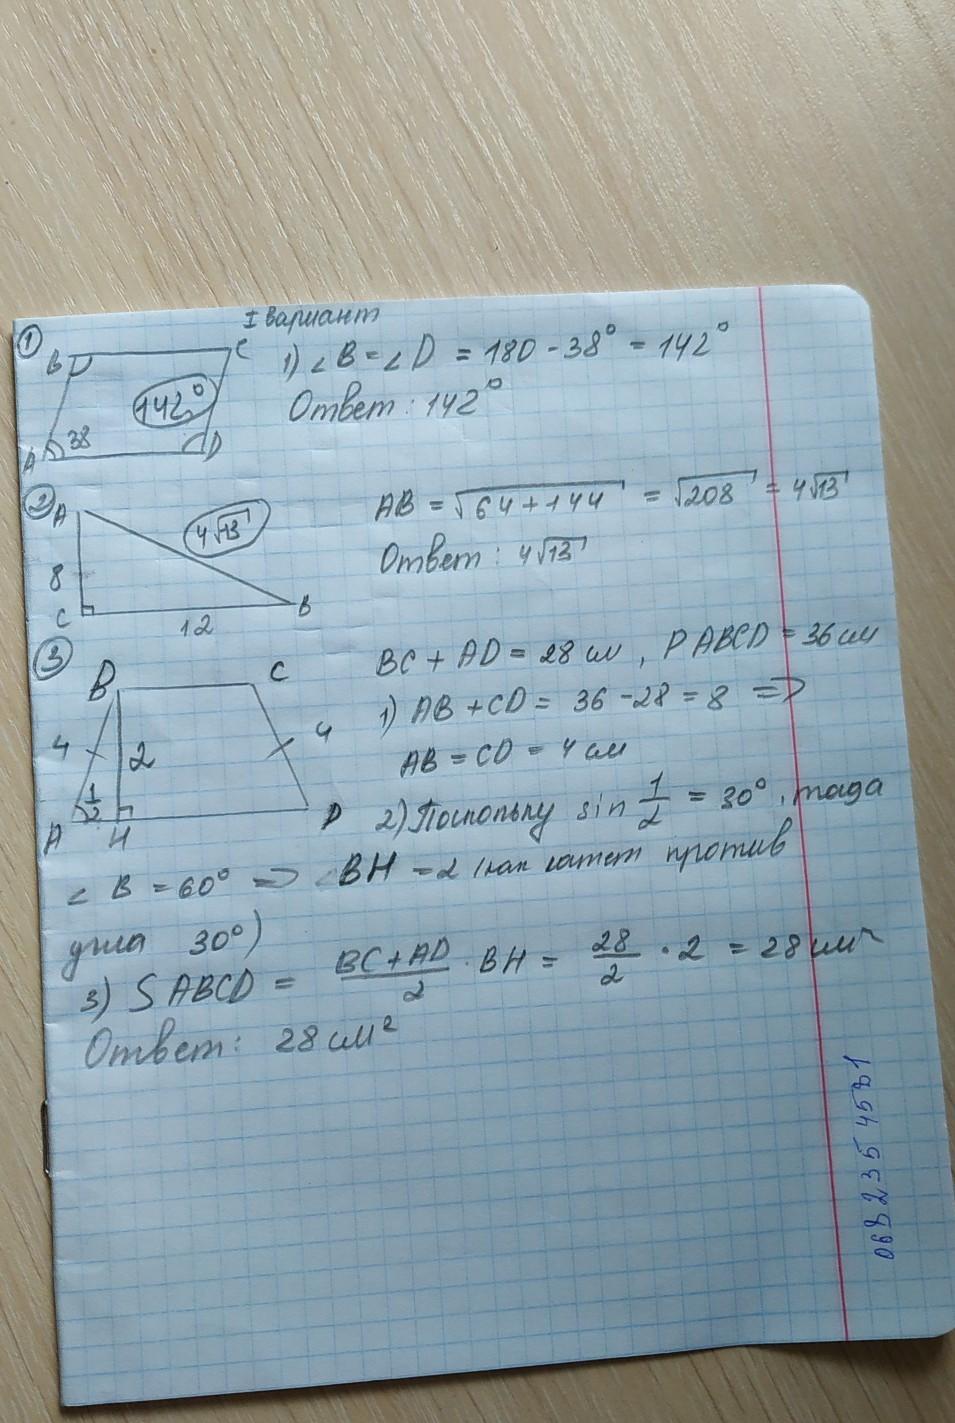 I вариант
1
B C
142°
A 38 D
1) ∠B = ∠D = 180 - 38° = 142°
Ответ: 142°
2
A
4√13
8
C B
12
AB = √64 + 144 = √208 = 4√13
Ответ: 4√13
3
B C
4 2 4
1/2
A H D
BC + AD = 28 см, P ABCD = 36 см
1) AB + CD = 36 - 28 = 8 =>
AB = CD = 4 см
2) Поскольку sin 1/2 = 30°, тада
∠B = 60° => BH = 2 (как катет против
угла 30°)
3) S ABCD = BC + AD / 2 · BH = 28/2 · 2 = 28 см²
Ответ: 28 см²